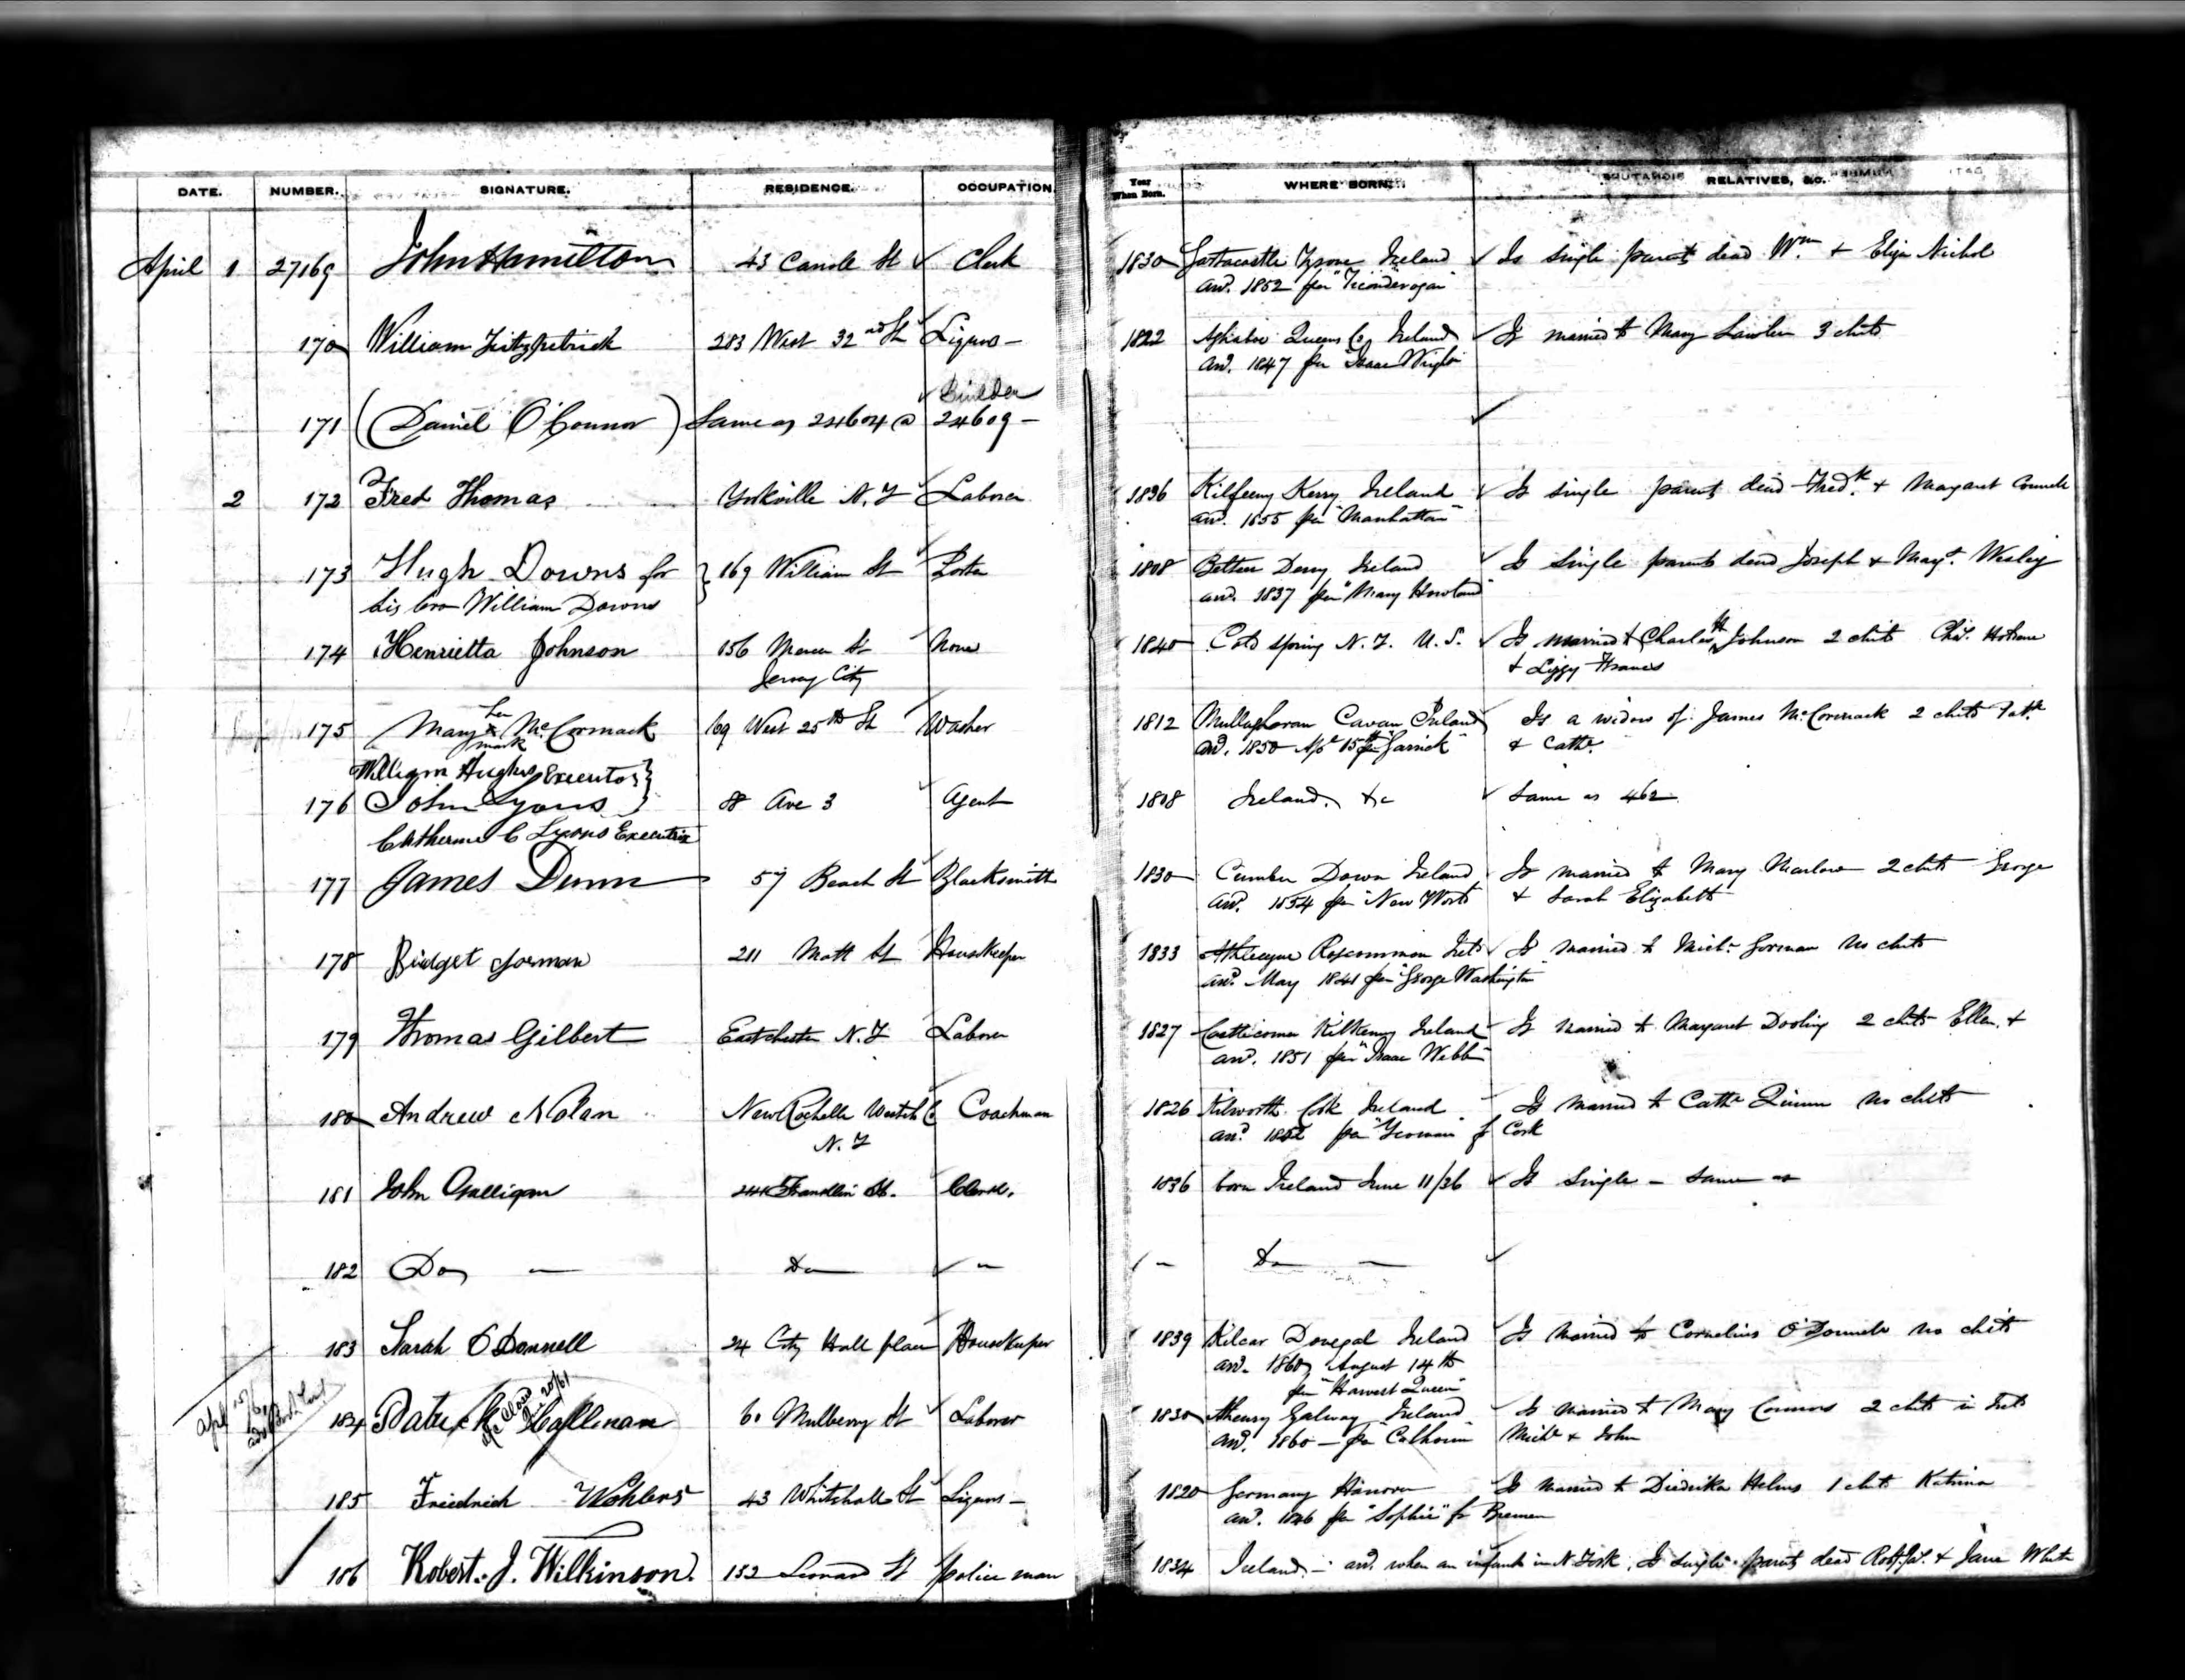 DATE. NUMBER. SIGNATURE. RESIDENCE. OCCUPATION. Year When Born. WHERE BORN. RELATIVES, &C.
April 1 27169 John Hamilton 43 St Clerk 1830 Tyrone Ireland Is single parents dead Wm. & Eliza Nichol
arrd. 1852 per "Ticonderoga"
170 William Fitzpatrick 283 West 32nd St Liquors - 1822 Queens Co. Ireland Is married to Mary Lawler 3 chds
arrd. 1847 per "Isaac Wright"
Builder
171 (Daniel O'Connor) Same as 24604 @ 24609 -
2 172 Fred Thomas Yorkville N.Y Laborer 1836 Kerry Ireland Is single parents dead Fredk. & Margaret
arrd. 1855 per "Manhattan"
173 Hugh Downs for } 169 William St Porter 1808 Derry Ireland Is single parents dead Joseph & Margt. Wesley
his bro William Downs arrd. 1837 per "Mary Howland"
174 Henrietta Johnson 156 Mercer St None 1840 Cold Spring N.Y. U.S. Is married to Charles H Johnson 2 chds Chas.
Jersey City & Lizzy Frances
her
175 Mary x McCormack 169 West 25th St Washer 1812 Mullaghoran Cavan Ireland Is a widow of James McCormack 2 chds Patk.
mark arrd. 1850 Apl 15th per "Garrick" & Cathe.
William Hughes Executor }
176 John Lyons 88 Ave 3 Agent 1808 Ireland. &c Same as 462
Catherine C Lyons Executrix
177 James Dunn 57 Beach St Blacksmith 1830 Cumber Down Ireland Is married to Mary Marlow 2 chds George
arrd. 1854 per "New World" & Sarah Elizabeth
178 Bridget Gorman 211 Mott St Housekeeper 1833 Athleague Roscommon Ireld Is married to Michl. Gorman no chds
arrd. May 1841 per "George Washington"
179 Thomas Gilbert Eastchester N.Y Laborer 1827 Castlecomer Kilkenny Ireland Is married to Margaret Dooling 2 chds Ellen &
arrd. 1851 per "Isaac Webb"
180 Andrew Nolan New Rochelle Westch Co Coachman 1826 Kilworth Cork Ireland Is married to Cathe Quinn no chds
N.Y arrd. 1852 per fr Cork
181 John Galligan Franklin St. Clerk. 1836 born Ireland June 11/36 Is single - same as
182 Do — Do — " — Do —
183 Sarah O'Donnell 24 City Hall place Housekeeper 1839 Kilcar Donegal Ireland Is married to Cornelius O'Donnell no chds
arrd. 1860 August 14th
per "Harvest Queen"
184 Patrick Hallinan 60 Mulberry St Laborer 1830 Athenry Galway Ireland Is married to Mary Connors 2 chds in Ireld
arrd. 1860 - per "Calhoun" Michl & John
185 Friedrich Wohlers 43 Whitehall St Liquors - 1820 Germany Hanover Is married to Diedrika Helms 1 chd Katrina
arrd. 1846 per "Sophie" fr Bremen
186 Robert. J. Wilkinson. 152 Leonard St policeman 1834 Ireland - arrd. when an infant in N York. Is single parents dead Robt. & Jane White